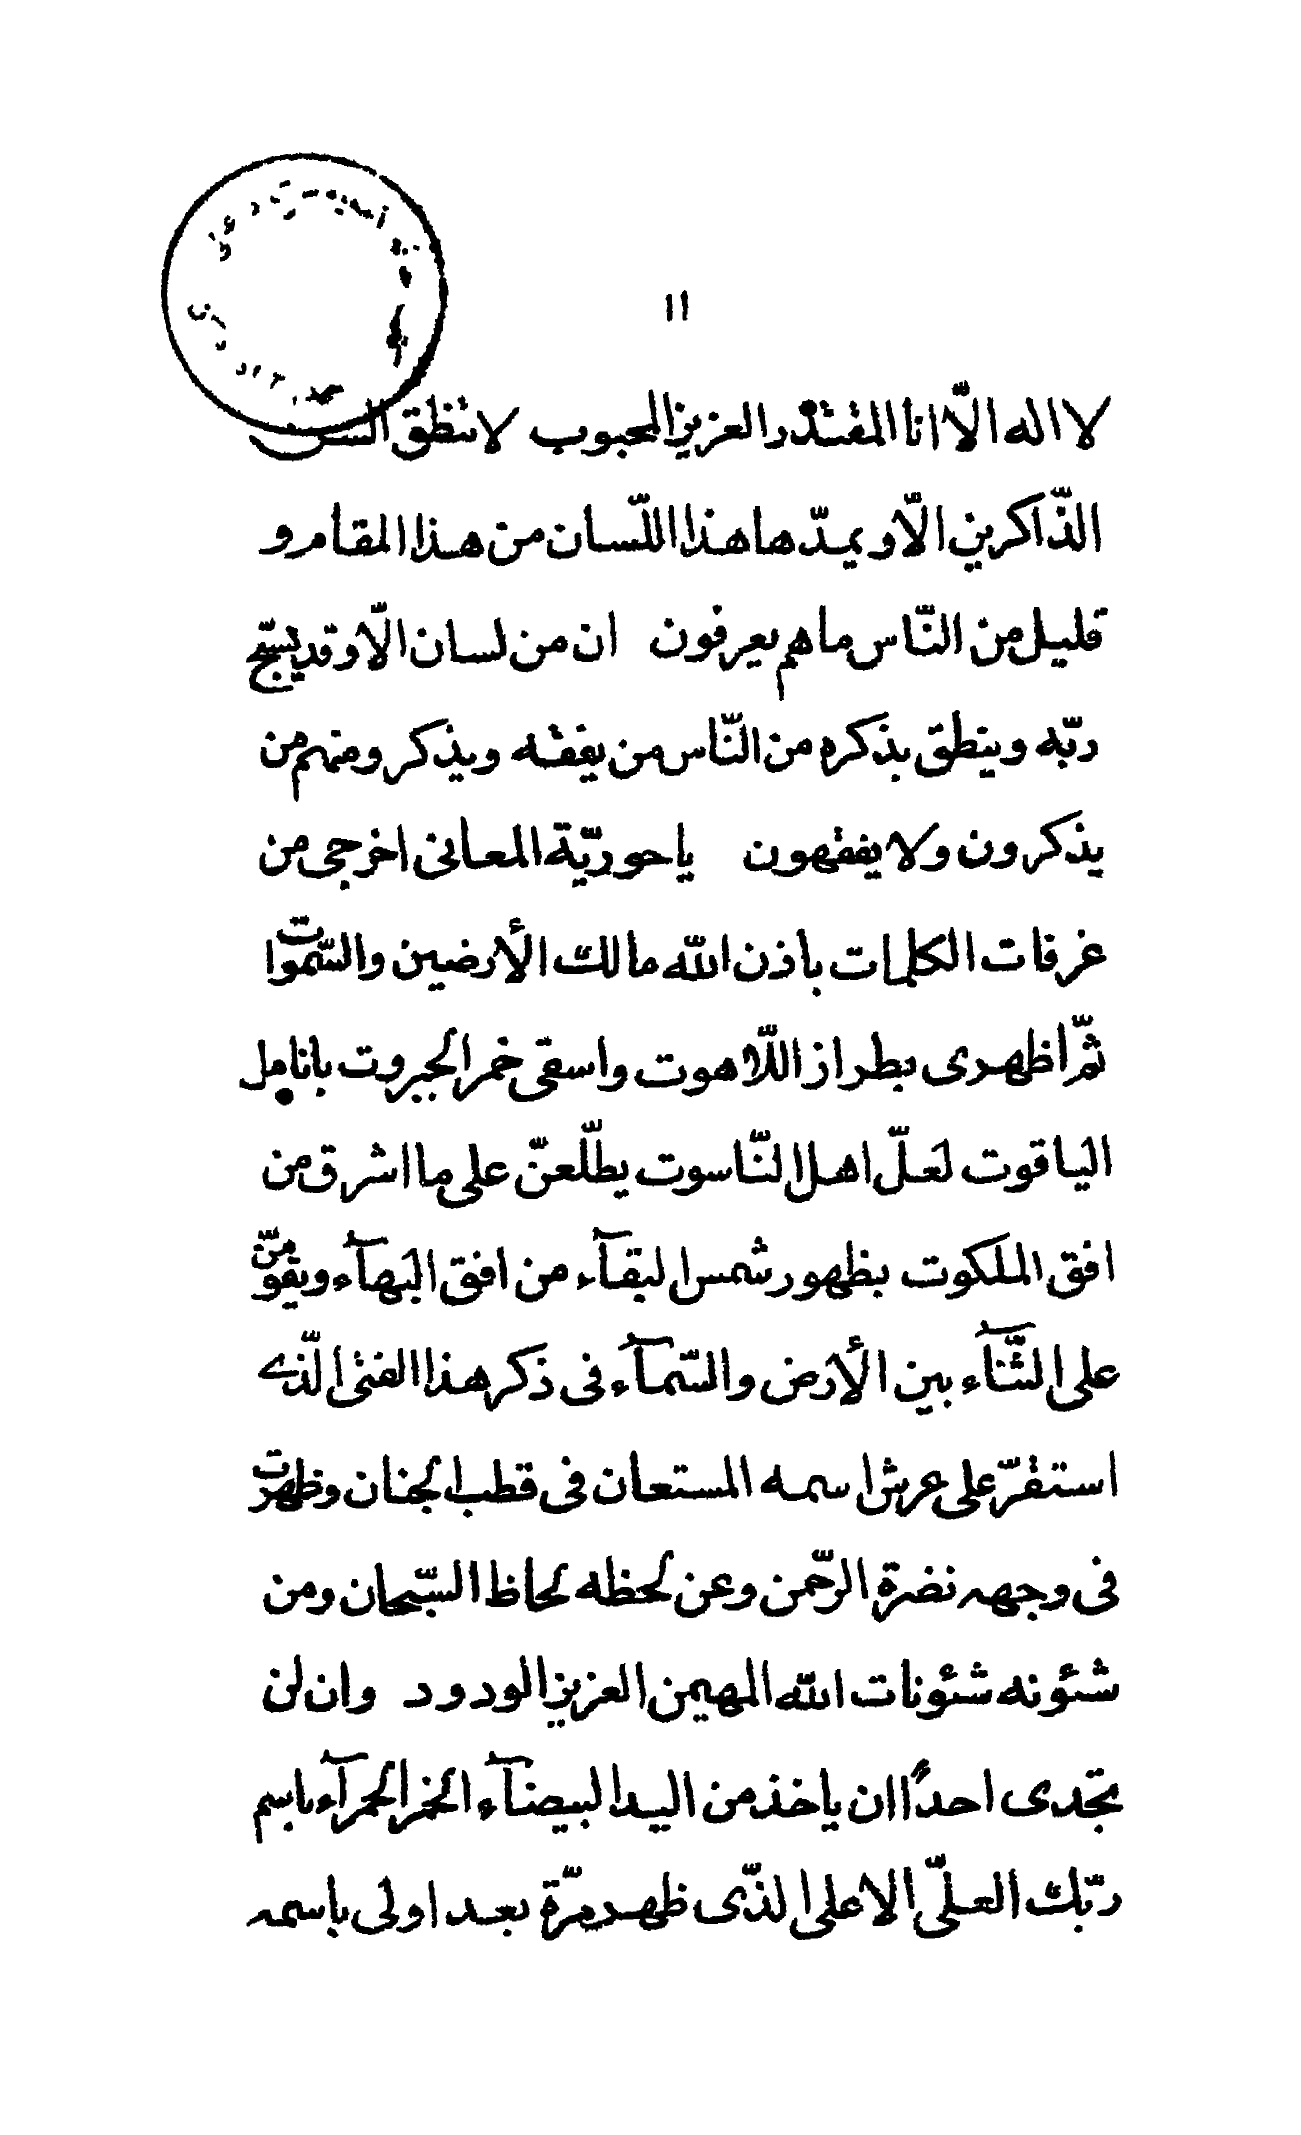 ١١
لا اله الّا انا المقتدر العزيز المحبوب لا تنطق السن
الذّاكرين الّا و يمدّها هذا اللّسان من هذا المقام و
قليل من النّاس ما هم يعرفون ان من لسان الّا و قد يسبّح
ربّه و ينطق بذكره من النّاس من يفقه و يذكر و منهم من
يذكرون و لا يفقهون يا حوريّة المعانى اخرجى من
غرفات الكلمات باذن الله مالك الأرضين و السّموات
ثمّ اظهرى بطراز اللّاهوت و اسقى خمر الجبروت بانامل
الياقوت لعلّ اهل النّاسوت يطّلعنّ على ما اشرق من
افق الملكوت بظهور شمس البقآء من افق البهآء و يقومنّ
على الثّنآء بين الأرض و السّمآء فى ذكر هذا الفتى الّذى
استقرّ على عرش اسمه المستعان فى قطب الجنان و ظهرت
فى وجهه نضرة الرّحمن و عن لحظه لحاظ السّبحان و من
شئونه شئونات الله المهيمن العزيز الودود و ان لن
تجدى احداً ان ياخذ من اليد البيضآء الخمر الحمرآء باسم
ربّك العلىّ الاعلى الذّى ظهر مرّة بعد اولى باسمه